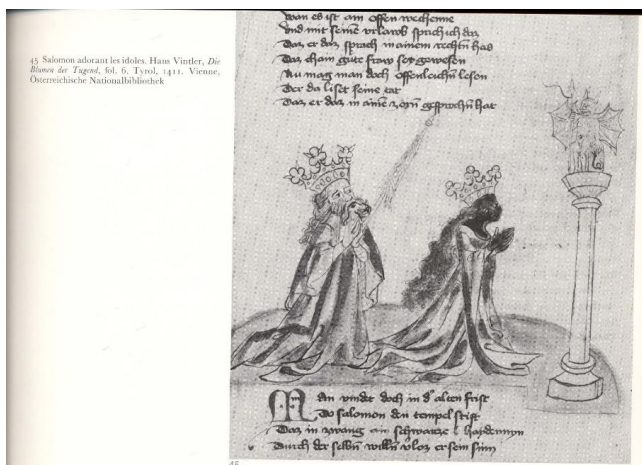 45 Salomon adorant les idoles. Hans Vintler, Die
Blumen der Tugend, fol. 6. Tyrol, 1411. Vienne,
Österreichische Nationalbibliothek
wan es ist am offen
Vnd mit seinē vrlawb sprich ich daz
Daz er daz sprach in ainem rechtn has
Daz chain gute fraw sey gewesen
Nu mag man doch offenleichn lesen
Der da liset seine tat
Daz er daz in ainē zorn gesprochn hat
Man vindet doch in d' alten frist
Do salomon den tempel stift
Daz in zwang ain schwartze haydennyn
Durch der selbn willn v'loz er sein sinn
45